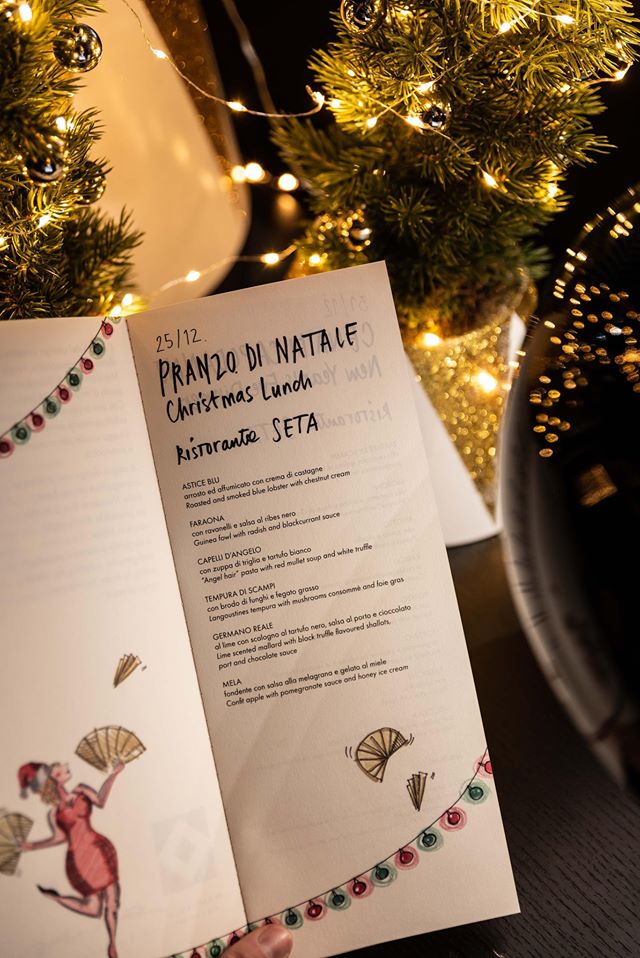 25/12.
PRANZO DI NATALE
Christmas Lunch
Ristorante SETA
ASTICE BLU
arrosto ed affumicato con crema di castagne
Roasted and smoked blue lobster with chestnut cream
FARAONA
con ravanelli e salsa al ribes nero
Guinea fowl with radish and blackcurrant sauce
CAPELLI D'ANGELO
con zuppa di triglia e tartufo bianco
"Angel hair" pasta with red mullet soup and white truffle
TEMPURA DI SCAMPI
con brodo di funghi e fegato grasso
Langoustines tempura with mushrooms consommé and foie gras
GERMANO REALE
al lime con scalogno al tartufo nero, salsa al porto e cioccolato
Lime scented mallard with black truffle flavoured shallots,
port and chocolate sauce
MELA
fondente con salsa alla melagrana e gelato al miele
Confit apple with pomegranate sauce and honey ice cream